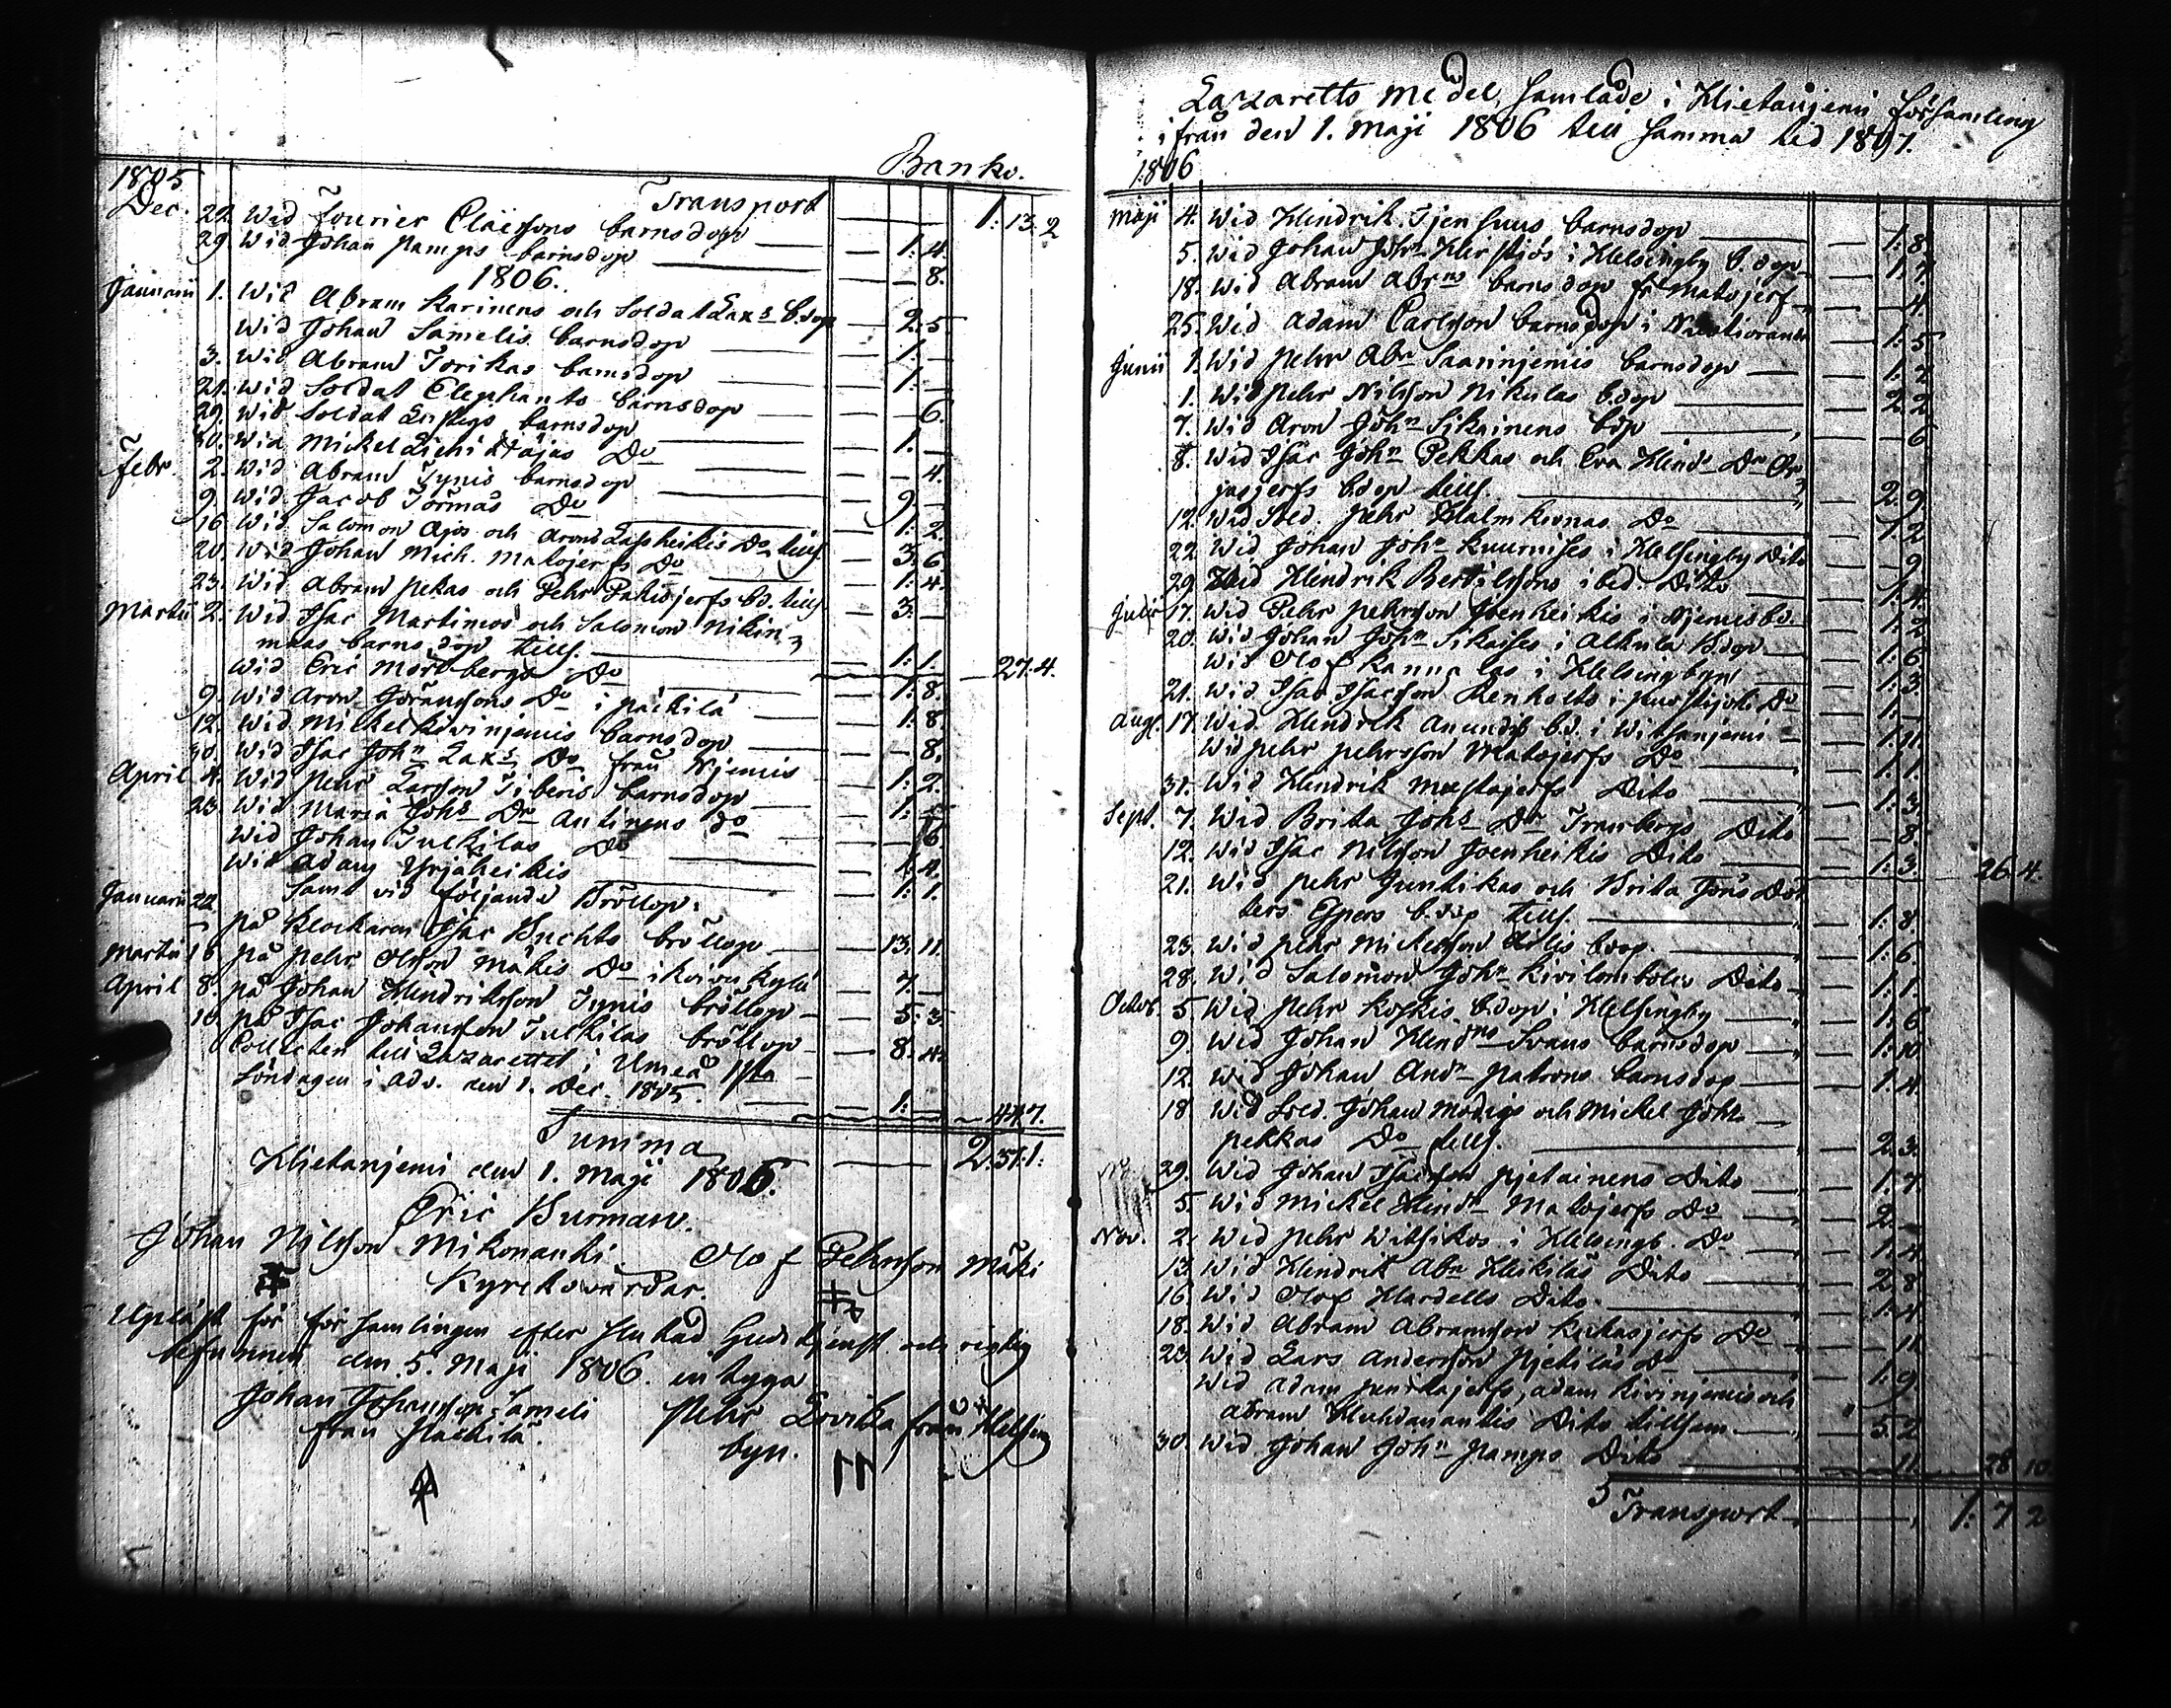 Banko.
1805 Transport 1: 13. 2
Dec. 22. Wid Fourier Claessons barnsdop 1: 4.
29. Wid Johan Pamps barnsdop 8.
1806.
Januarii 1. Wid Abram Karinens och Soldat Lax's b.dop 2: 5
Wid Johan Samelis barnsdop 1: –
3. Wid Abram Torikas barnsdop 1: –
21. Wid Soldat Elephants barnsdop 6.
29. Wid Soldat barnsdop 1. –
30. Wid Mickel Do 4.
Febr. 2. Wid Abram Tynis barnsdop 9 –
9. Wid Jacob Tormas Do 1: 2.
16. Wid Salomon Ajos och Arond Lassheikis Do tills. 3: 6.
20. Wid Johan Mich. Matojerfs Do 1: 4.
23. Wid Abram Pekas och Pehr Pakisjerfs bd. tills. 3: –
Martii 2. Wid Isac Martimos och Salomon Nikin
maas barnsdop tills. 1: 1. 27: 4.
Wid Eric Mörtbergs Do 1: 8.
9. Wid Aron Göranssons Do i Päckilä 1: 8
12. Wid Mickel Kivinjemis barnsdop 8.
30. Wid Isac Johns Lax's Do från Njemis 1: 2.
April 4. Wid Pehr Larsson Tiberis barnsdop 1: 5
23. Wid Maria Johs Dr Antinens do 6.
Wid Johan Tulkilas Do 1: 4.
Wid Adam Yrjäheikis 1: 1.
Samt vid följande Bröllop:
Januarii 22. på Klockaren Isac Buchts bröllop 13: 11.
Martii 16 på Pehr Olsson Mäkis Do i Koivukylä 7. –
April 8. på Johan Hindriksson Tynis bröllop 5: 3.
10. på Isac Johansson Tulkilas bröllop 8: 4.
Collecten till Lazarettet i Umeå 1sta
Söndagen i Adv. den 1. Dec. 1805. 1: – 44: 7.
Summa 2: 37. 1.
Hietanjemi den 1. Maji 1806.
Eric Burman.
Johan Nilsson Mikonanki Olof Pehrsson Mäki
Kyrkowärdar.
Upläst för församlingen efter slutad Gudstjenst och rigtig
befunnen den 5. Maji 1806. intyga
Johan Johansson Sameli Pehr Lovika från Helsing
från Päckilä. byn.
Lazaretts medel, samlade i Hietanjemi församling
ifrån den 1. Maji 1806 till samma tid 1807.
1806
Maji 4. Wid Hindrik barnsdop 1: 8.
5. Wid Johan Johns i Helsingby b. dop 1: 7.
18. Wid Abram Abrms barnsdop fr. Matojerf 4.
25. Wid Adam Carlsson barnsdop i 1: 5
Junii 1. Wid Pehr Abr Saarinjemis barnsdop 1: 2
1. Wid Pehr Nilsson Nikulas b.dop 2: 2
7. Wid Aron Johns Sikainens bdop 6
8. Wid Isac Johns Pekkas och Eva Hinds Dr
jasjerfs b.dop tills. 2: 9.
12. Wid Sold. Pehr Malmkonas Do 1: 2
22. Wid Johan Johns Kuurnises i Helsingby Dito 9
29. Wid Hindrik Bertilssons ibid. Dito 1: 4.
Julii 17. Wid Pehr Pehrsson Joenheikis i Njemis bd. 1: 2
20. Wid Johan Johns Sikaises i Alkula B.dop. 1: 6.
Wid Olof Kannalas i Helsingbyn 1: 3.
21. Wid Isac Isacsson i Do 1: –
Aug. 17. Wid Hindrik Anundis b.d. i Witsanjemi 1: 11.
Wid Pehr Pehrsson Matojerfs Do 1: 1.
31. Wid Hindrik Mustajerfs Dito 1: 3.
Sept. 7. Wid Brita Johs Dr Dito 8.
12. Wid Isac Nilsson Joenheikis Dito 1: 3. 26: 4.
21. Wid Pehr Juntikas och Brita Jöns Dot
ters Espers b. dop tills. 1: 8.
23. Wid Pehr Mickelsson b.dop. 1: 6.
28. Wid Salomon Johns Kivilombolos Dito 1: 1.
Octob. 5. Wid Pehr Koskis b.dop i Helsingby 1: 6.
9. Wid Johan Hindrns Svans barnsdop 1: 10.
12. Wid Johan Ands Patrons barnsdop 1: 4.
18. Wid Sold. Johan Modigs och Mickel Johns
Pekkas Do tills. 2: 3.
29. Wid Johan Isacsson Pjetainens Dito 1: 7.
5. Wid Mickel Hinds Matojerfs Do 2. –
Nov. 2. Wid Pehr Witsikos i Helsingb. Do 1: 4.
13. Wid Hindrik Abr Heikilas Dito 2: 8.
16. Wid Olof Hardells Dito 1: 4.
18. Wid Abram Abramsson Kukasjerfs Do 11
23. Wid Lars Andersson Pjetiläs Do 1: 9.
Wid Adam Pentäsjerfs, Adam Kivinjemis och
Abram Huhdanantis Dito tillsam 5: 2
30. Wid Johan Johns Pamps Dito 11 28: 10.
Transport 1: 7 2